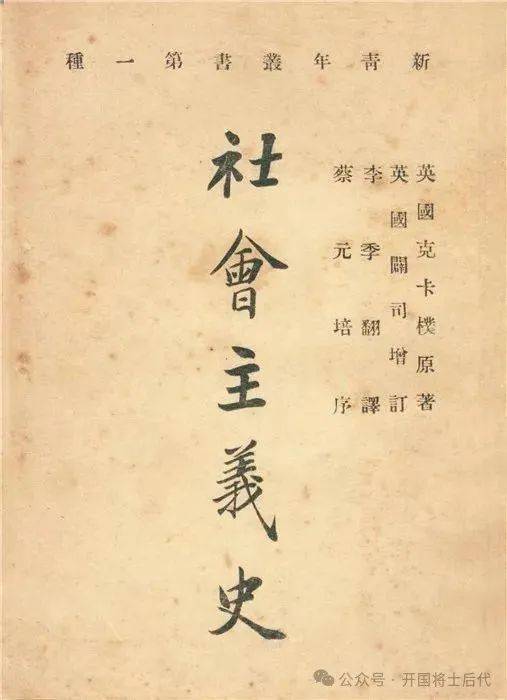 新青年叢書第一種
英國克卡樸原著
英國闢司增訂
李季翻譯
蔡元培序
社會主義史
公众号 · 开国将士后代